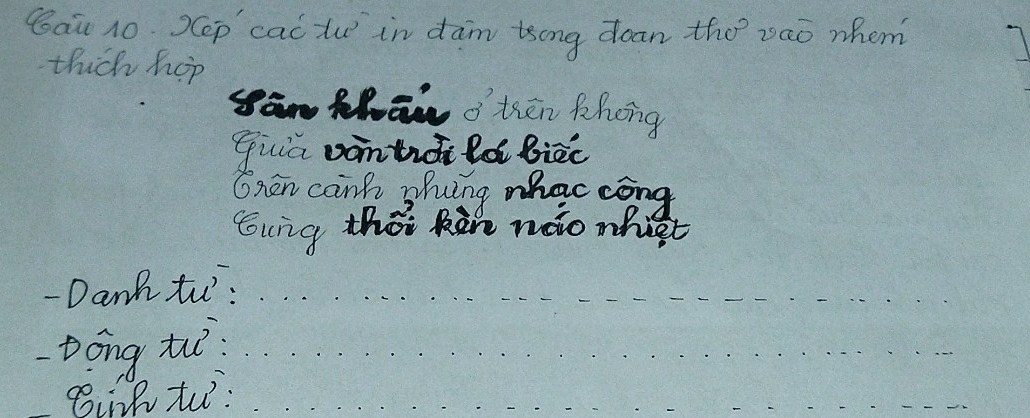 Câu 10. Xếp các từ in đậm trong đoạn thơ vào nhóm
thích hợp
Sân khấu ở trên không
Giữa vòm trời lá biếc
Trên cành những nhạc công
Cùng thổi kèn náo nhiệt
- Danh từ: ....................
- Động từ: ....................
- Tính từ: ....................